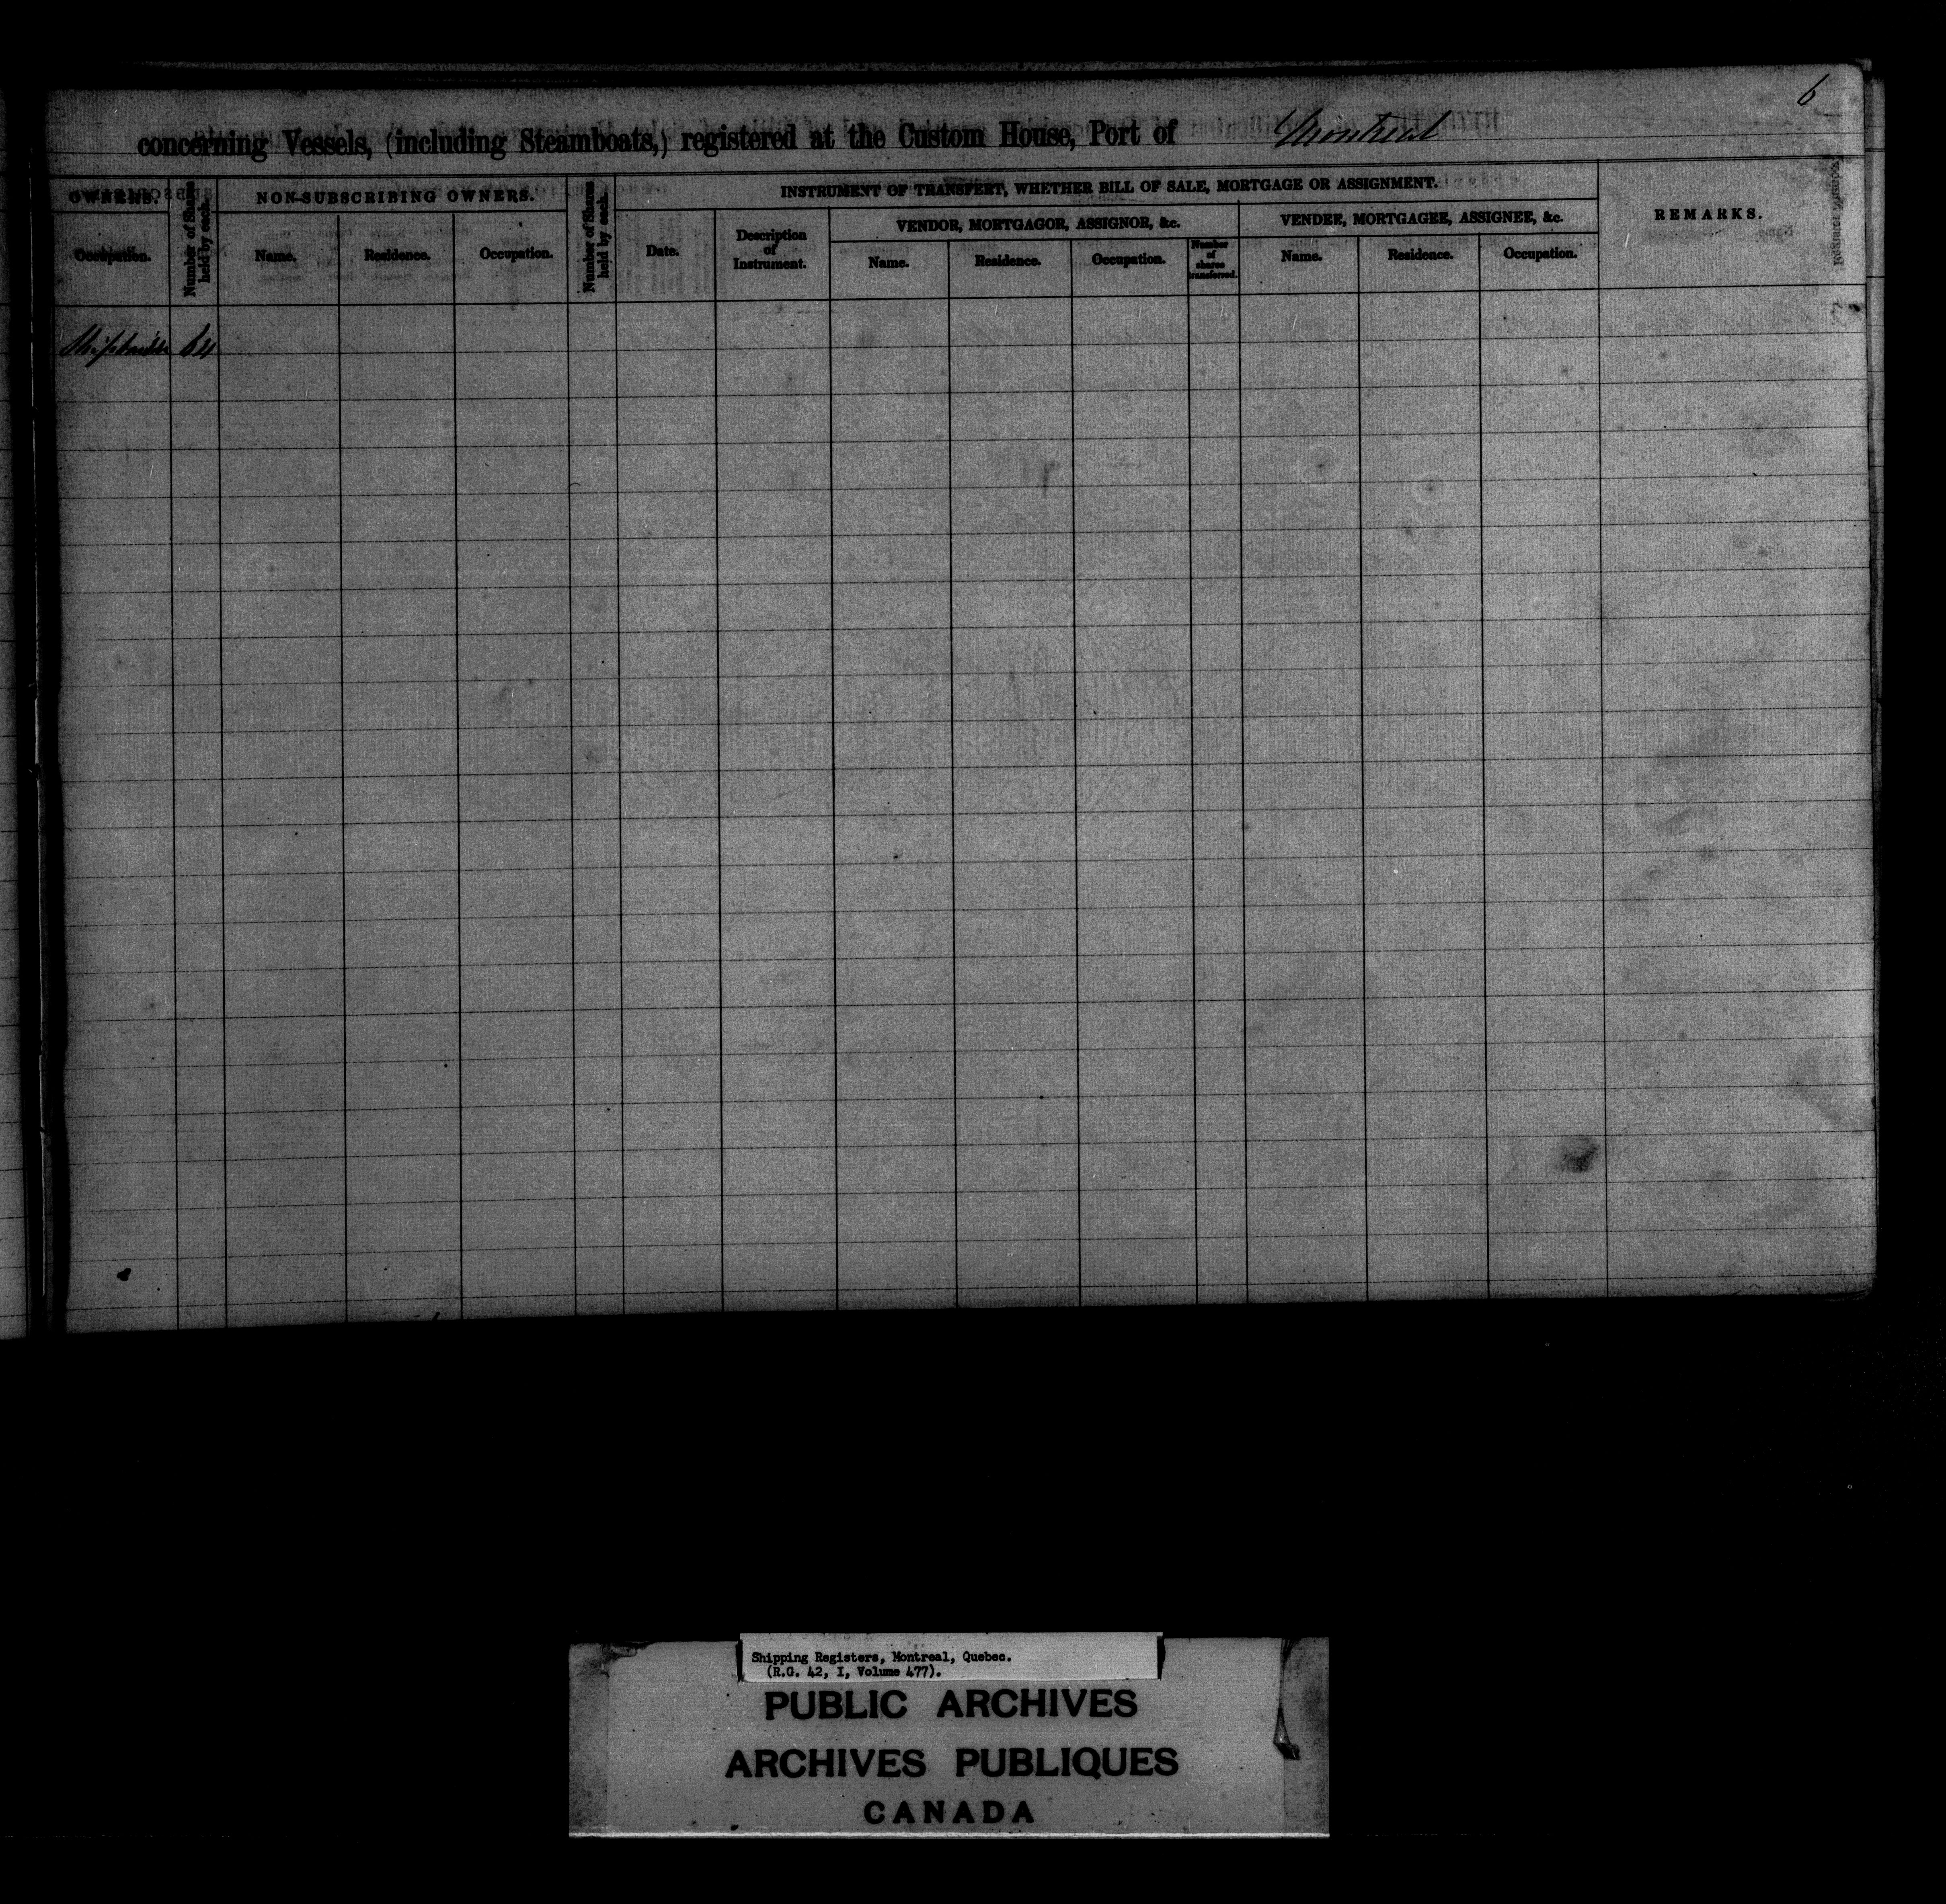 6
concerning Vessels, (including Steamboats,) registered at the Custom House, Port of Montreal
OWNERS.
Occupation.
Number of Shares held by each.
NON-SUBSCRIBING OWNERS.
Name.
Residence.
Occupation.
Number of Shares held by each.
INSTRUMENT OF TRANSFERT, WHETHER BILL OF SALE, MORTGAGE OR ASSIGNMENT.
Date.
Description
of
Instrument.
VENDOR, MORTGAGOR, ASSIGNOR, &c.
Name.
Residence.
Occupation.
Number
of
shares
transferred.
VENDEE, MORTGAGEE, ASSIGNEE, &c.
Name.
Residence.
Occupation.
REMARKS.
Shipbuilder 64
Shipping Registers, Montreal, Quebec.
(R.G. 42, I, Volume 477).
PUBLIC ARCHIVES
ARCHIVES PUBLIQUES
CANADA